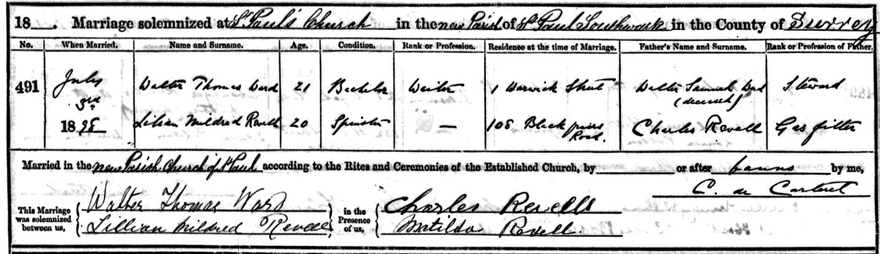 18 . Marriage solemnized at St Paul's Church in the new Parish of St Paul Southwark in the County of Surrey
No. When Married. Name and Surname. Age. Condition. Rank or Profession. Residence at the time of Marriage. Father's Name and Surname. Rank or Profession of Father.
491 July 3rd Walter Thomas Ward 21 Bachelor Waiter 1 Warwick Street Walter Samuel Ward (deceased) Steward
1898 Lilian Mildred Revell 20 Spinster — 108 Blackfriars Road Charles Revell Gas fitter
Married in the new Parish Church of St Paul according to the Rites and Ceremonies of the Established Church, by or after banns by me,
C. de Carteret
This Marriage was solemnized between us, { Walter Thomas Ward } in the Presence of us, { Charles Revell
Lillian Mildred Revell Matilda Revell